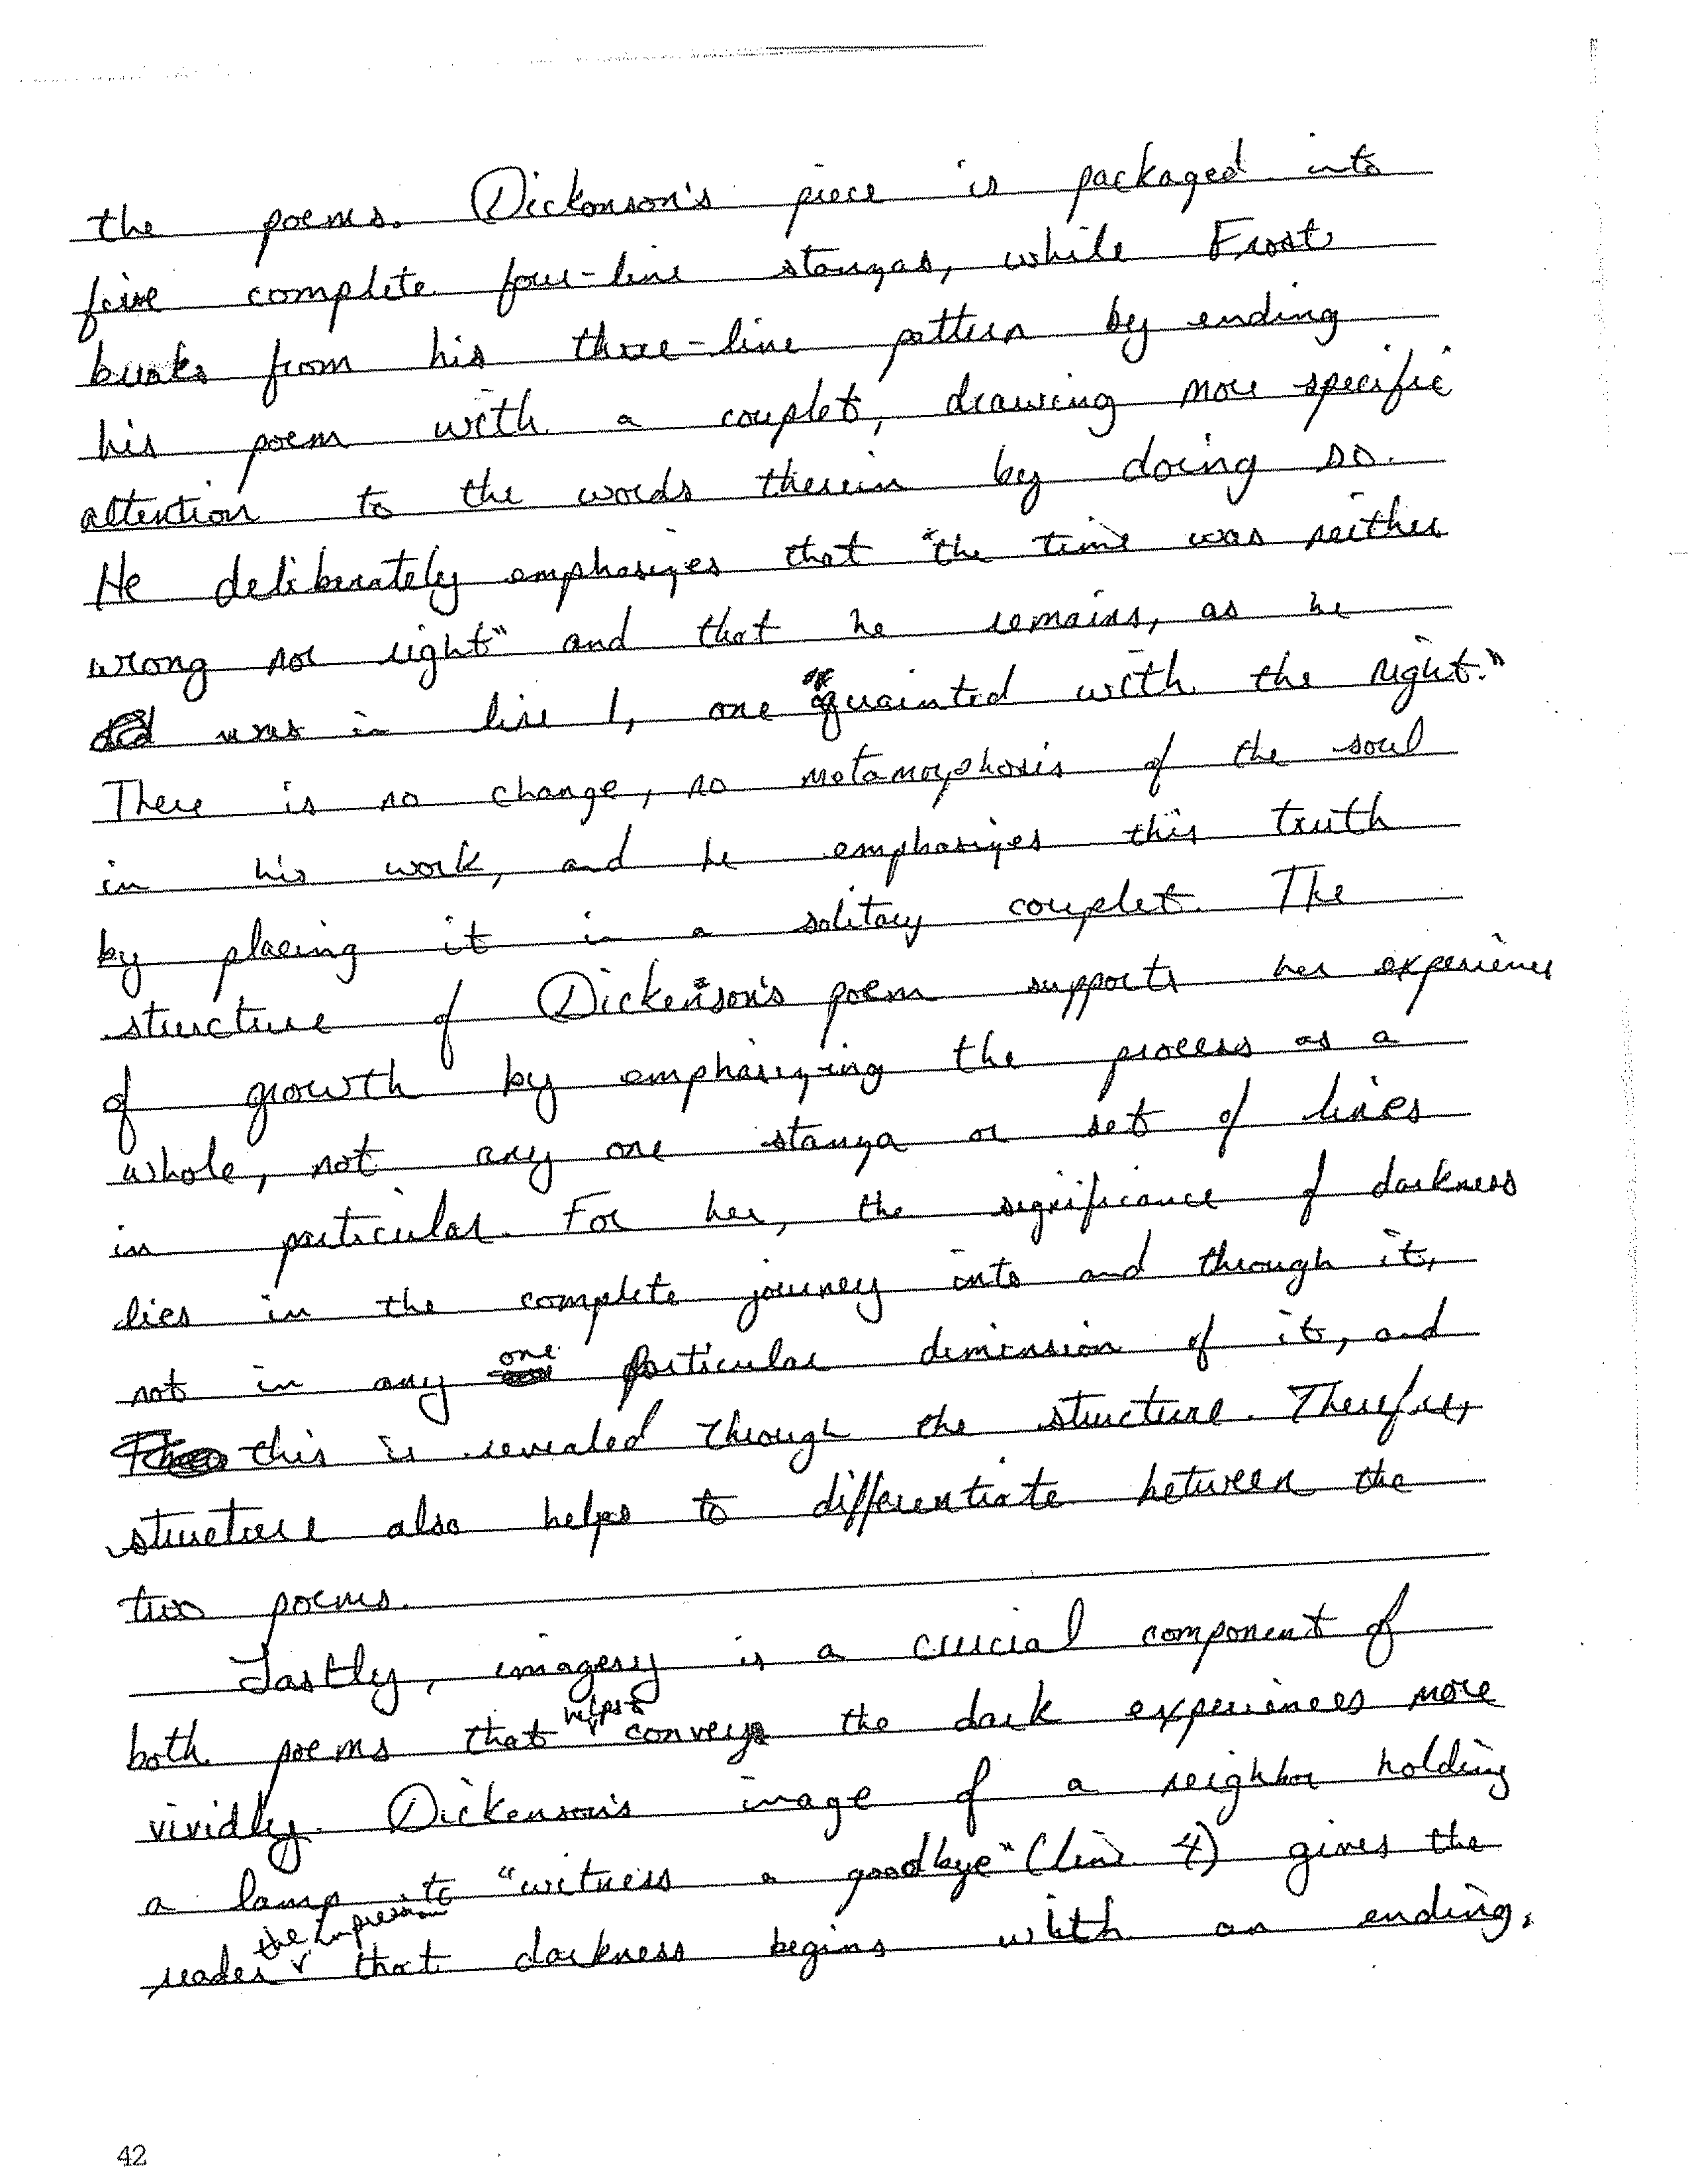 the poems. Dickonson's piece is packaged into
five complete four-line stanzas, while Frost
breaks from his three-line pattern by ending
his poem with a couplet, drawing more specific
attention to the words therein by doing so.
He deliberately emphasizes that "the time was neither
wrong nor right" and that he remains, as he
was in line 1, one "quainted with the night."
There is no change, no metamorphosis of the soul
in his work, and he emphasizes this truth
by placing it in a solitary couplet. The
structure of Dickenson's poem supports her experience
of growth by emphasizing the process as a
whole, not any one stanza or set of lines
in particular. For her, the significance of darkness
lies in the complete journey into and through it,
not in any one particular dimension of it, and
this is revealed through the structure. Therefore,
structure also helps to differentiate between the
two poems.
Lastly, imagery is a crucial component of
both poems that helps convey the dark experiences more
vividly. Dickenson's image of a neighbor holding
a lamp to "witness a goodbye" (line 4) gives the
reader the impression that darkness begins with an ending,
42